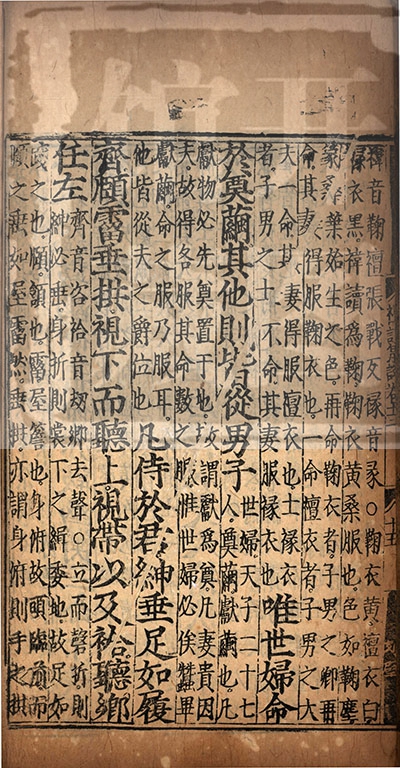 褘音鞠襢張戰反褖音彖○鞠衣黃襢衣白
褖衣黑褘讀爲鞠鞠衣黃桑服也色如鞠塵
象桑葉始生之色再命鞠衣者子男之卿再
命其妻得服鞠衣也一命襢衣者子男之大
夫一命其妻得服襢衣也士褖衣
者子男之士不命其妻服褖衣也
唯世婦命
於奠繭其他則皆從男子
世婦天子二十七
人奠繭獻繭也凡
獻物必先奠置于地故謂獻爲奠凡妻貴因
夫故得各服其命數之服惟世婦必俟蠶畢
獻繭命之服乃服耳
他皆從夫之爵位也
凡侍於君紳垂足如履
齊頤霤垂拱視下而聽上視帶以及袷聽鄉
任左
齊音咨袷音刼鄉去聲○立而磬折則
紳必垂身折則裳下之緝委地故足如
踐之也頤頷也霤屋簷也身俯故頭臨前而
頤之垂如屋霤然垂拱亦謂身俯則手之拱